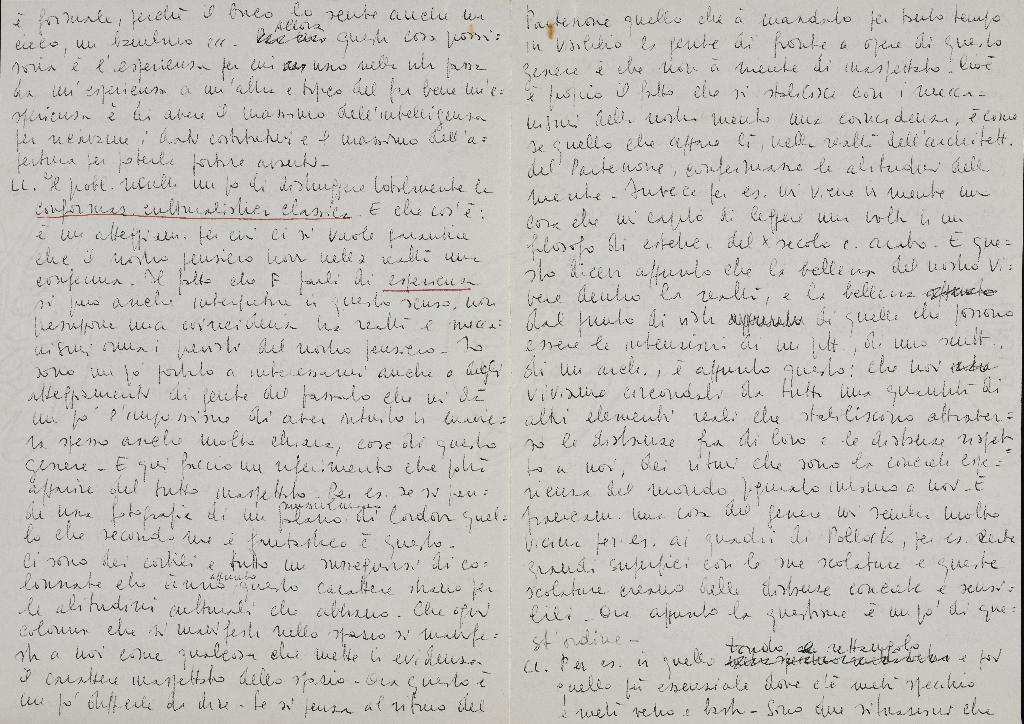 è formale, perché il buco lo sente anche un
cieco, un bambino ecc. allora questa cosa possi=
 è l'esperienza per cui uno nella sua
da un'esperienza a un'altra e dopo del fare bene un'e=
sperienza è di avere il massimo dell'intelligenza
per i dati costitutivi e il massimo dell'a=
pertura per poterla portare avanti.
CL. Il probl. risulta un po' di distinguere totalmente la
conformaz. culturalistica classica. E che cos'è:
è un atteggiam. per cui ci si vuole garantire
che il nostro pensiero trovi nella realtà una
conferma. Il fatto che F parli di esperienza
si può anche interpretare in questo senso, non
presuppone una coincidenza tra realtà e mecca=
nismi ormai previsti del nostro pensiero. Io
sono un po' portato a interessarmi anche a degli
atteggiamenti di gente del passato che mi dà
un po' l' di aver intuito in manie=
ra spesso anche molto chiara, cose di questo
genere. E qui faccio un riferimento che potrà
apparire del tutto inaspettato. Per es. se si pren=
de una fotografia di un palazzo musulmano di Cordova quel=
lo che secondo me è fantastico è questo.
Ci sono dei cortili e tutto un susseguirsi di co=
lonnate che ànno appunto questo carattere strano per
le abitudini culturali che abbiamo. Che ogni
colonna che si manifesta nello spazio si manife=
sta a noi come qualcosa che mette in evidenza
il carattere inaspettato dello spazio. Ora questo è
un po' difficile da dire. Se si pensa al ritmo del
Partenone quello che à mandato per tanto tempo
in visibilio la gente di fronte a opere di questo
genere è che non à niente di inaspettato. Cioè
è proprio il fatto che si stabilisce con i mecca=
nismi della nostra mente una coincidenza, è come
se quello che appare lì, nella realtà dell'architett.
del Partenone, confermasse le abitudini della
mente. Invece per es. mi viene in mente una
cosa che mi capitò di leggere una volta in un
filosofo di estetica del X secolo c. arabo. E que=
sto diceva appunto che la bellezza del nostro vi=
vere dentro la realtà, e la bellezza
dal punto di vista di quelle che possono
essere le intenzioni di un pitt., di uno scult.,
di un arch., è appunto questo: che noi
viviamo circondati da tutta una quantità di
altri elementi reali che stabiliscono attraver=
so le distanze fra di loro e le distanze rispet=
to a noi, dei ritmi che sono la concreta espe=
rienza del mondo intorno a noi. E
francam. una cosa del genere mi sembra molto
vicina per es. ai quadri di Pollock, per es. certe
grandi superfici con le sue scolature e queste
scolature creano delle distanze concrete e sensi=
bili. Ora appunto la questione è un po' di que=
st'ordine.
CL. Per es. in quello tondo, rettangolo e poi
quello più essenziale dove c'è metà specchio
e metà vetro e basta. Sono due situazioni che